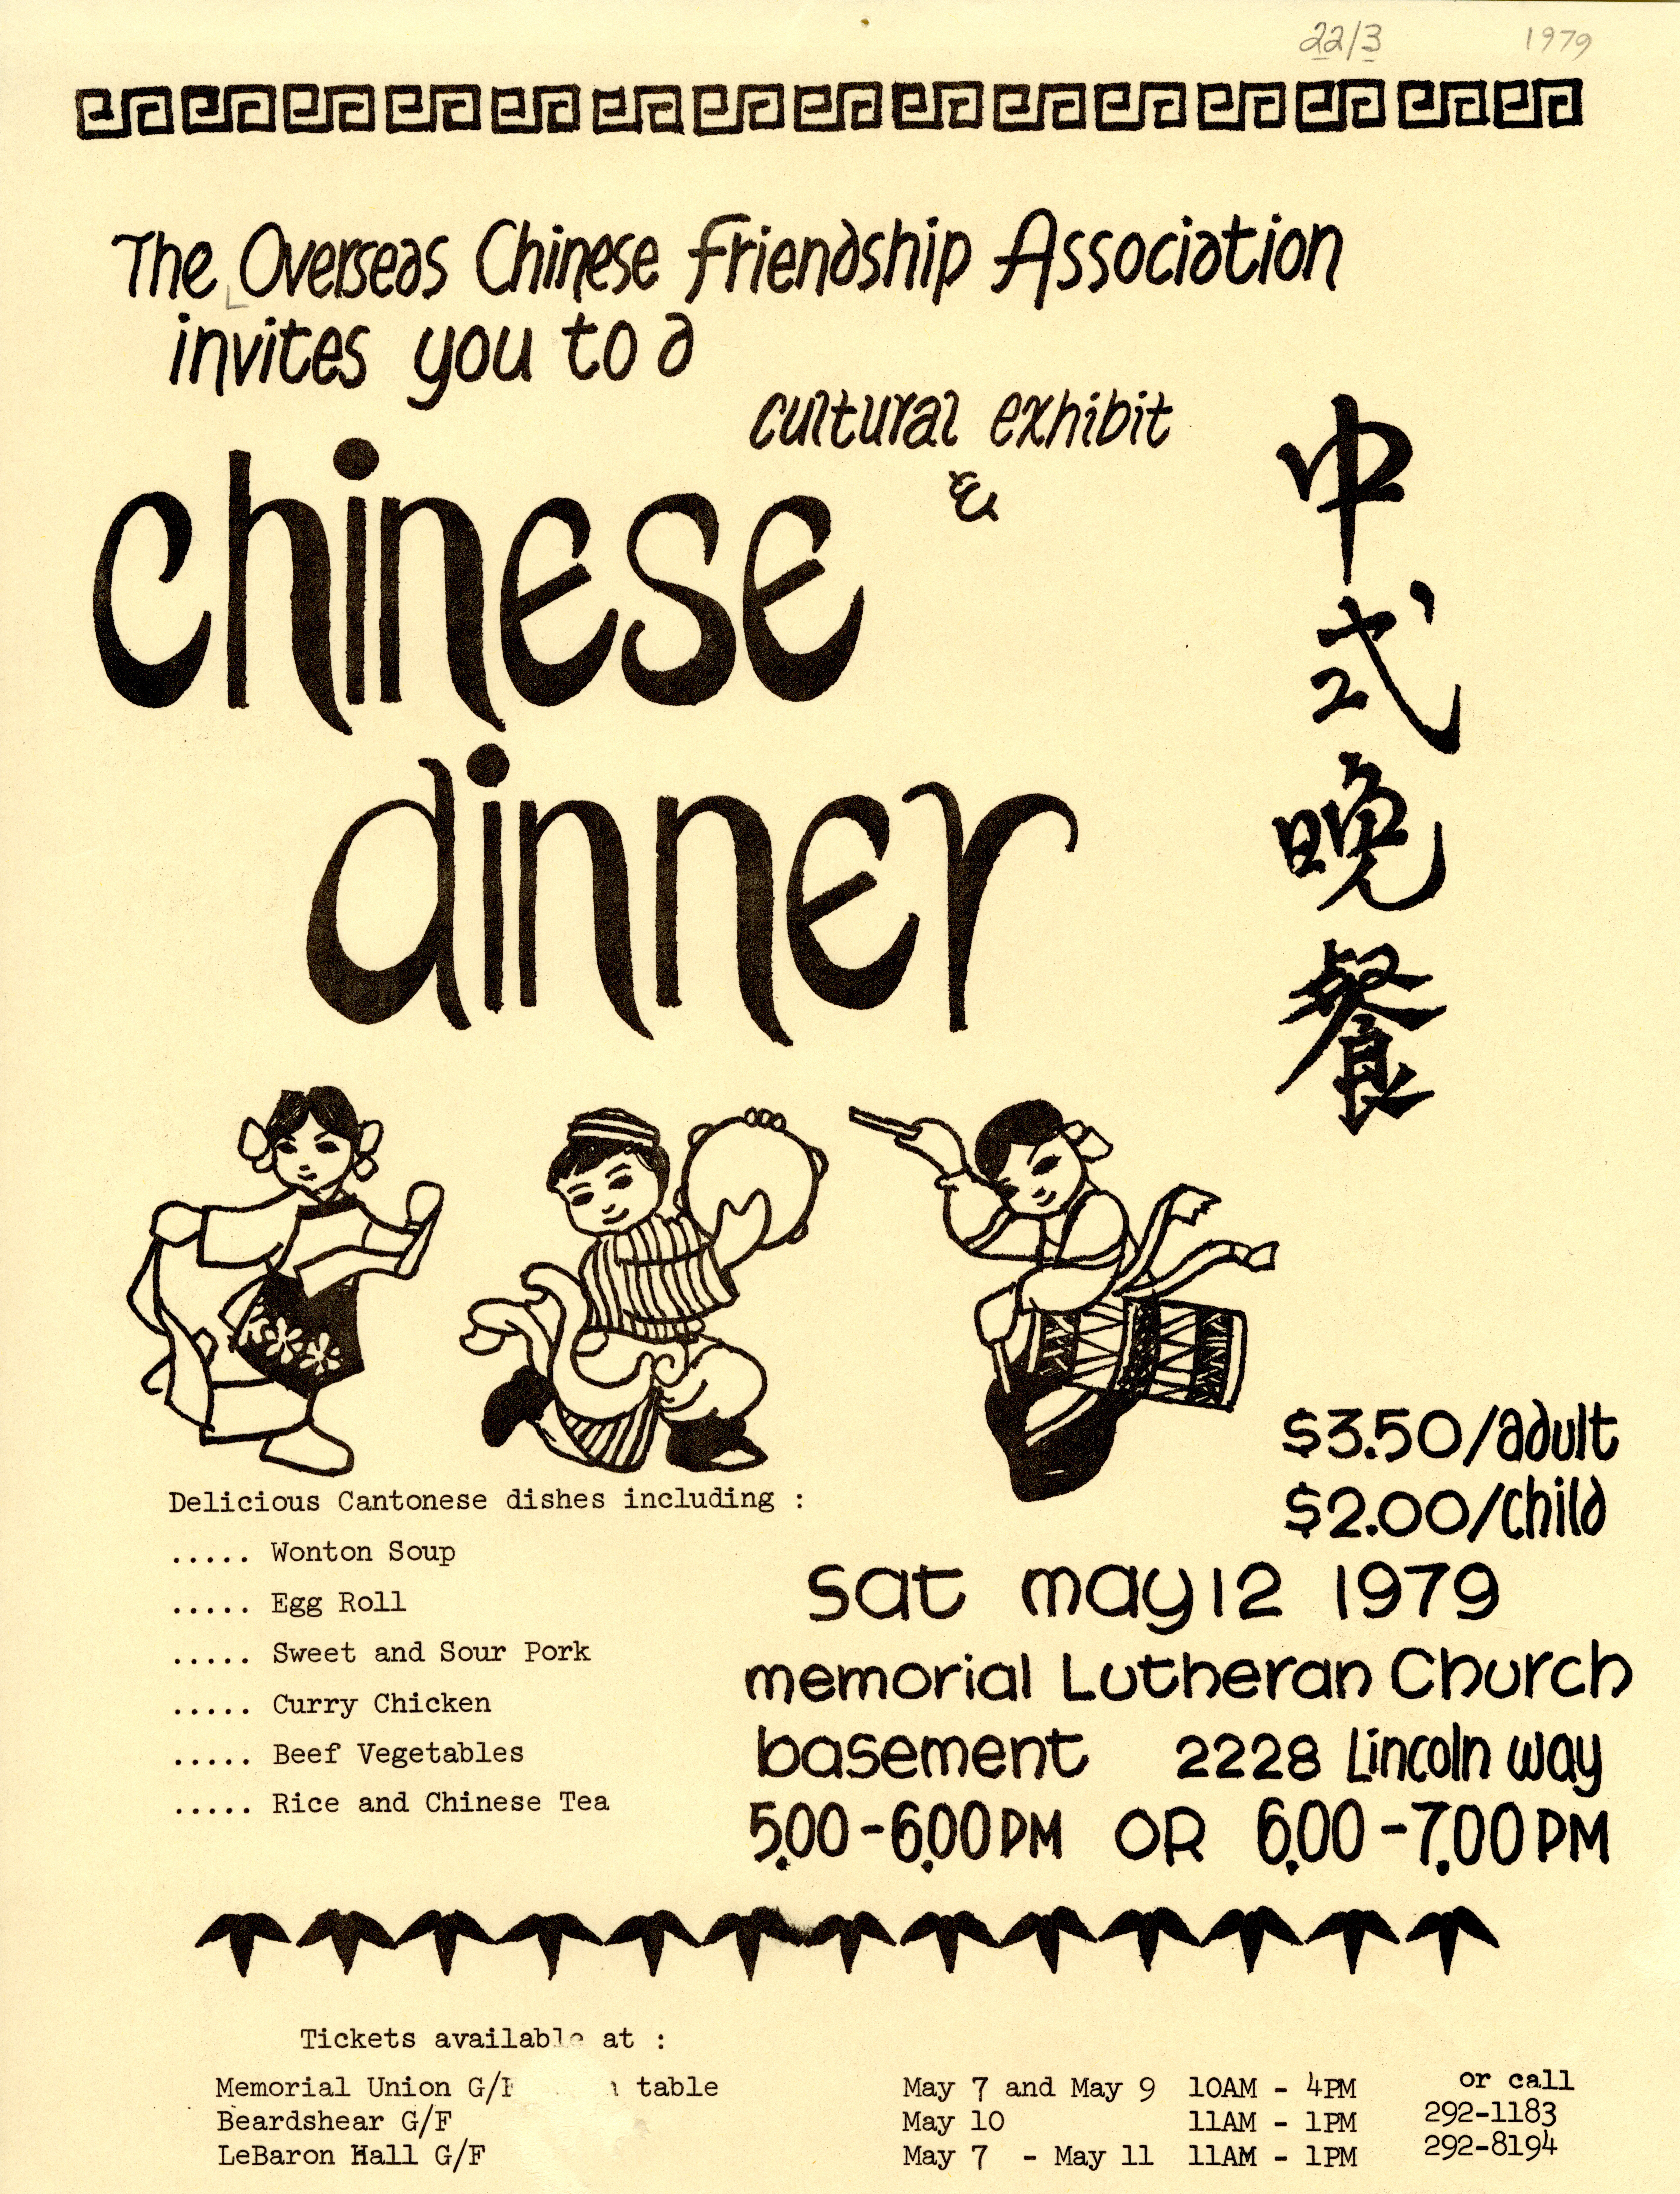 22/3 1979
The Overseas Chinese Friendship Association
invites you to a
cultural exhibit
&
chinese
dinner
中式晚餐
$3.50/adult
$2.00/child
Delicious Cantonese dishes including :
..... Wonton Soup
..... Egg Roll
..... Sweet and Sour Pork
..... Curry Chicken
..... Beef Vegetables
..... Rice and Chinese Tea
Sat may 12 1979
memorial Lutheran Church
basement 2228 Lincoln way
5.00-6.00 PM OR 6.00-7.00 PM
Tickets available at :
Memorial Union G/F table May 7 and May 9 10AM - 4PM
Beardshear G/F May 10 11AM - 1PM
LeBaron Hall G/F May 7 - May 11 11AM - 1PM
or call
292-1183
292-8194